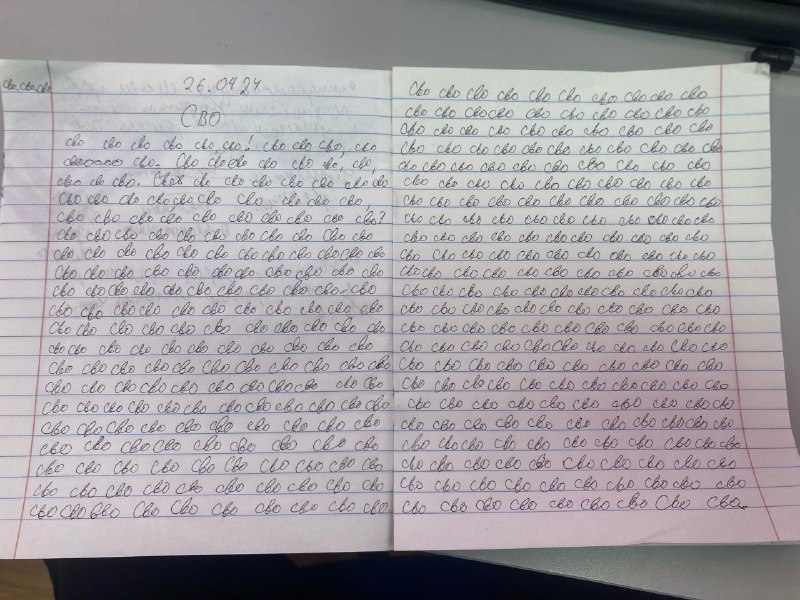 сво, сво, сво
26.04.24
СВО
сво сво сво сво сво, сво! сво сво сво, сво
сво. Сво сво сво сво сво сво, сво,
сво сво сво. Сво сво сво сво сво сво сво
Сво сво сво сво сво сво сво сво сво сво,
сво сво сво сво сво сво сво сво сво сво?
сво сво сво сво сво сво сво сво сво сво
сво сво сво сво сво сво сво сво сво сво сво
Сво сво сво сво сво сво сво сво сво сво сво
сво сво сво сво сво сво сво сво сво сво сво
сво сво сво сво сво сво сво сво сво сво
сво сво сво сво сво сво сво сво сво сво
сво сво сво сво сво сво сво сво сво сво
сво сво сво сво сво сво сво сво сво сво сво
сво сво сво сво сво сво сво сво сво сво сво
сво сво сво сво сво сво сво сво сво сво сво
сво сво сво сво сво сво сво сво сво сво
сво сво сво сво сво сво сво сво сво
сво сво сво сво сво сво сво сво сво сво
сво сво сво сво сво сво сво сво сво сво
сво сво сво сво сво сво сво сво сво сво
сво сво сво сво сво сво сво сво сво сво
сво сво сво сво сво сво сво сво сво сво
сво сво сво сво сво сво сво сво сво сво
сво сво сво сво сво сво сво сво сво сво сво
сво сво сво сво сво сво сво сво сво сво
сво сво сво сво сво сво сво сво сво сво
сво сво сво сво сво сво сво сво сво сво сво
сво сво сво сво сво сво сво сво сво сво сво
сво сво сво сво сво сво сво сво сво сво
сво сво сво сво сво сво сво сво сво сво
сво сво сво сво сво сво сво сво сво сво сво
сво сво сво сво сво сво сво сво сво сво сво
сво сво сво сво сво сво сво сво сво сво сво
сво сво сво сво сво сво сво сво сво сво сво
сво сво сво сво сво сво сво сво сво сво сво
сво сво сво сво сво сво сво сво сво сво
сво сво сво сво сво сво сво сво сво сво сво
сво сво сво сво сво сво сво сво сво сво
сво сво сво сво сво сво сво сво сво сво сво
сво сво сво сво сво сво сво сво сво сво сво
сво сво сво сво сво сво сво сво сво сво
сво сво сво сво сво сво сво сво сво сво
сво сво сво сво сво сво сво сво Сво сво.